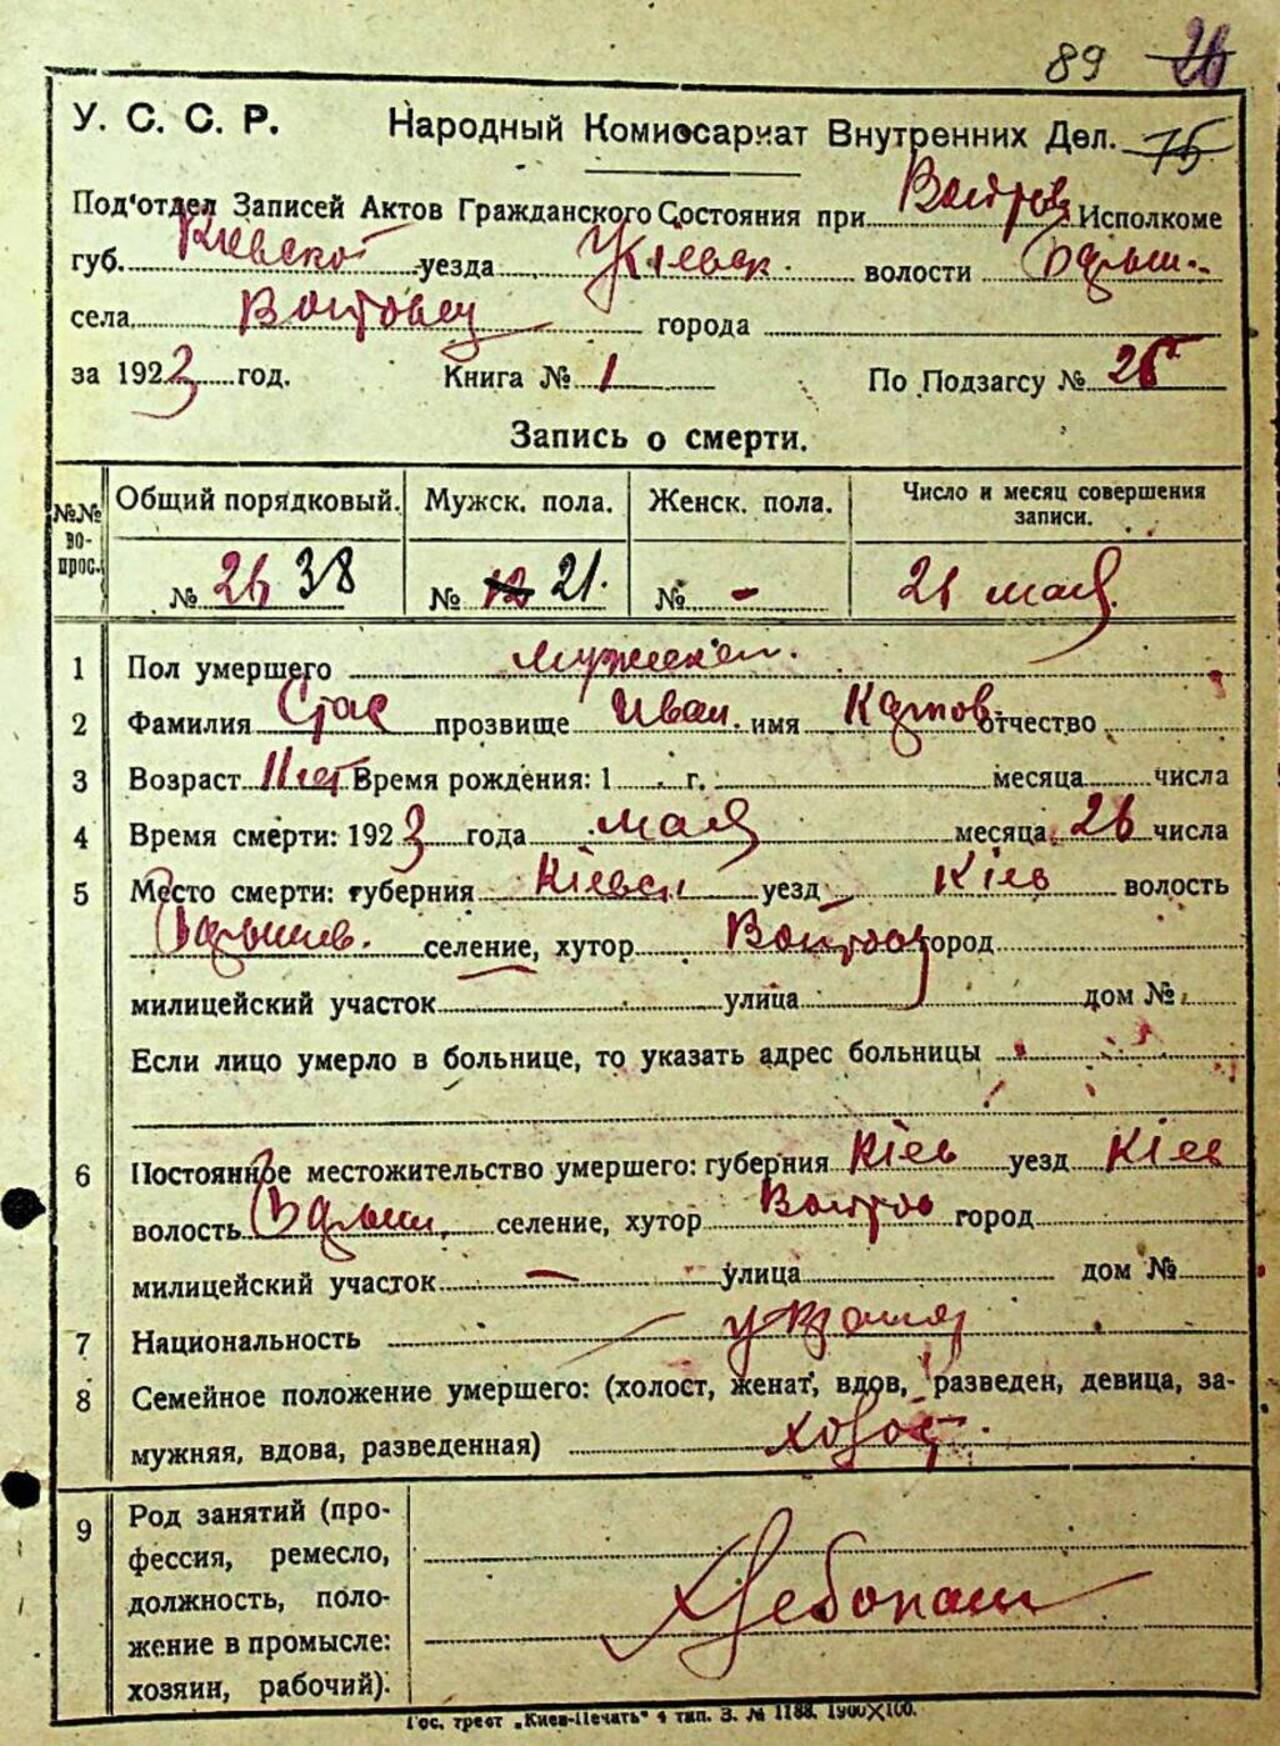 89 26
У. С. С. Р. Народный Комиссариат Внутренних Дел. 75
Под'отдел Записей Актов Гражданского Состояния при Войтов Исполкоме
губ. Киевской уезда Киевск. волости
села Войтовец города
за 1923 год. Книга № 1 По Подзагсу №
Запись о смерти.
№№ во-прос. Общий порядковый. Мужск. пола. Женск. пола. Число и месяц совершения записи.
№ 26 38 № 21. № - 26 мая
1 Пол умершего мужской.
2 Фамилия Стас прозвище Иван. имя отчество
3 Возраст 11 лет Время рождения: 1 г. месяца числа
4 Время смерти: 1923 года мая месяца 26 числа
5 Место смерти: губерния Кіевск уезд Кіев волость
селение, хутор Войтов город
милицейский участок улица дом №
Если лицо умерло в больнице, то указать адрес больницы
6 Постоянное местожительство умершего: губерния Кіев уезд Кіев
волость селение, хутор Войтов город
милицейский участок — улица дом №
7 Национальность
8 Семейное положение умершего: (холост, женат, вдов, разведен, девица, за-
мужняя, вдова, разведенная) холост.
9 Род занятий (про-
фессия, ремесло,
должность, поло-
жение в промысле:
хозяин, рабочий).
Хлебопаш
Гос. трест „Киев-Печать" 4 тип. З. № 1188. 1900X100.